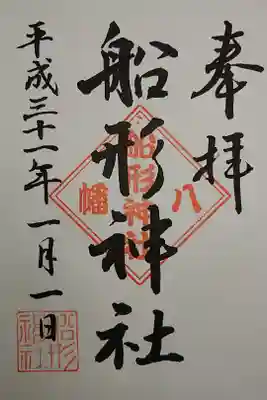 奉拝
船形神社
平成三十一年一月一日
八幡
船形神社
船形神社